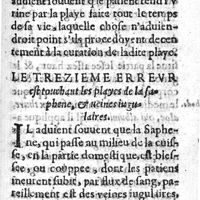 aduient souuent que le patient rend l'v
rine par la playe faire tout le temps
de sa vie, laquelle chose n'aduien-
droit point s'ils procedoyent decen-
tement à la curation de ladite playe.
LE TREZIEME ERREVR
est touchant les playes de la sa-
phene, & veines iugu-
laires.
IL aduient souuent que la Saphe-
ne, qui passe au milieu de la cuis-
se, en la partie domestique, est bles-
see, ou couppee, dont les patiens
meurent subit, par flux de sang, pa-
reillement est des veines iugulaires,